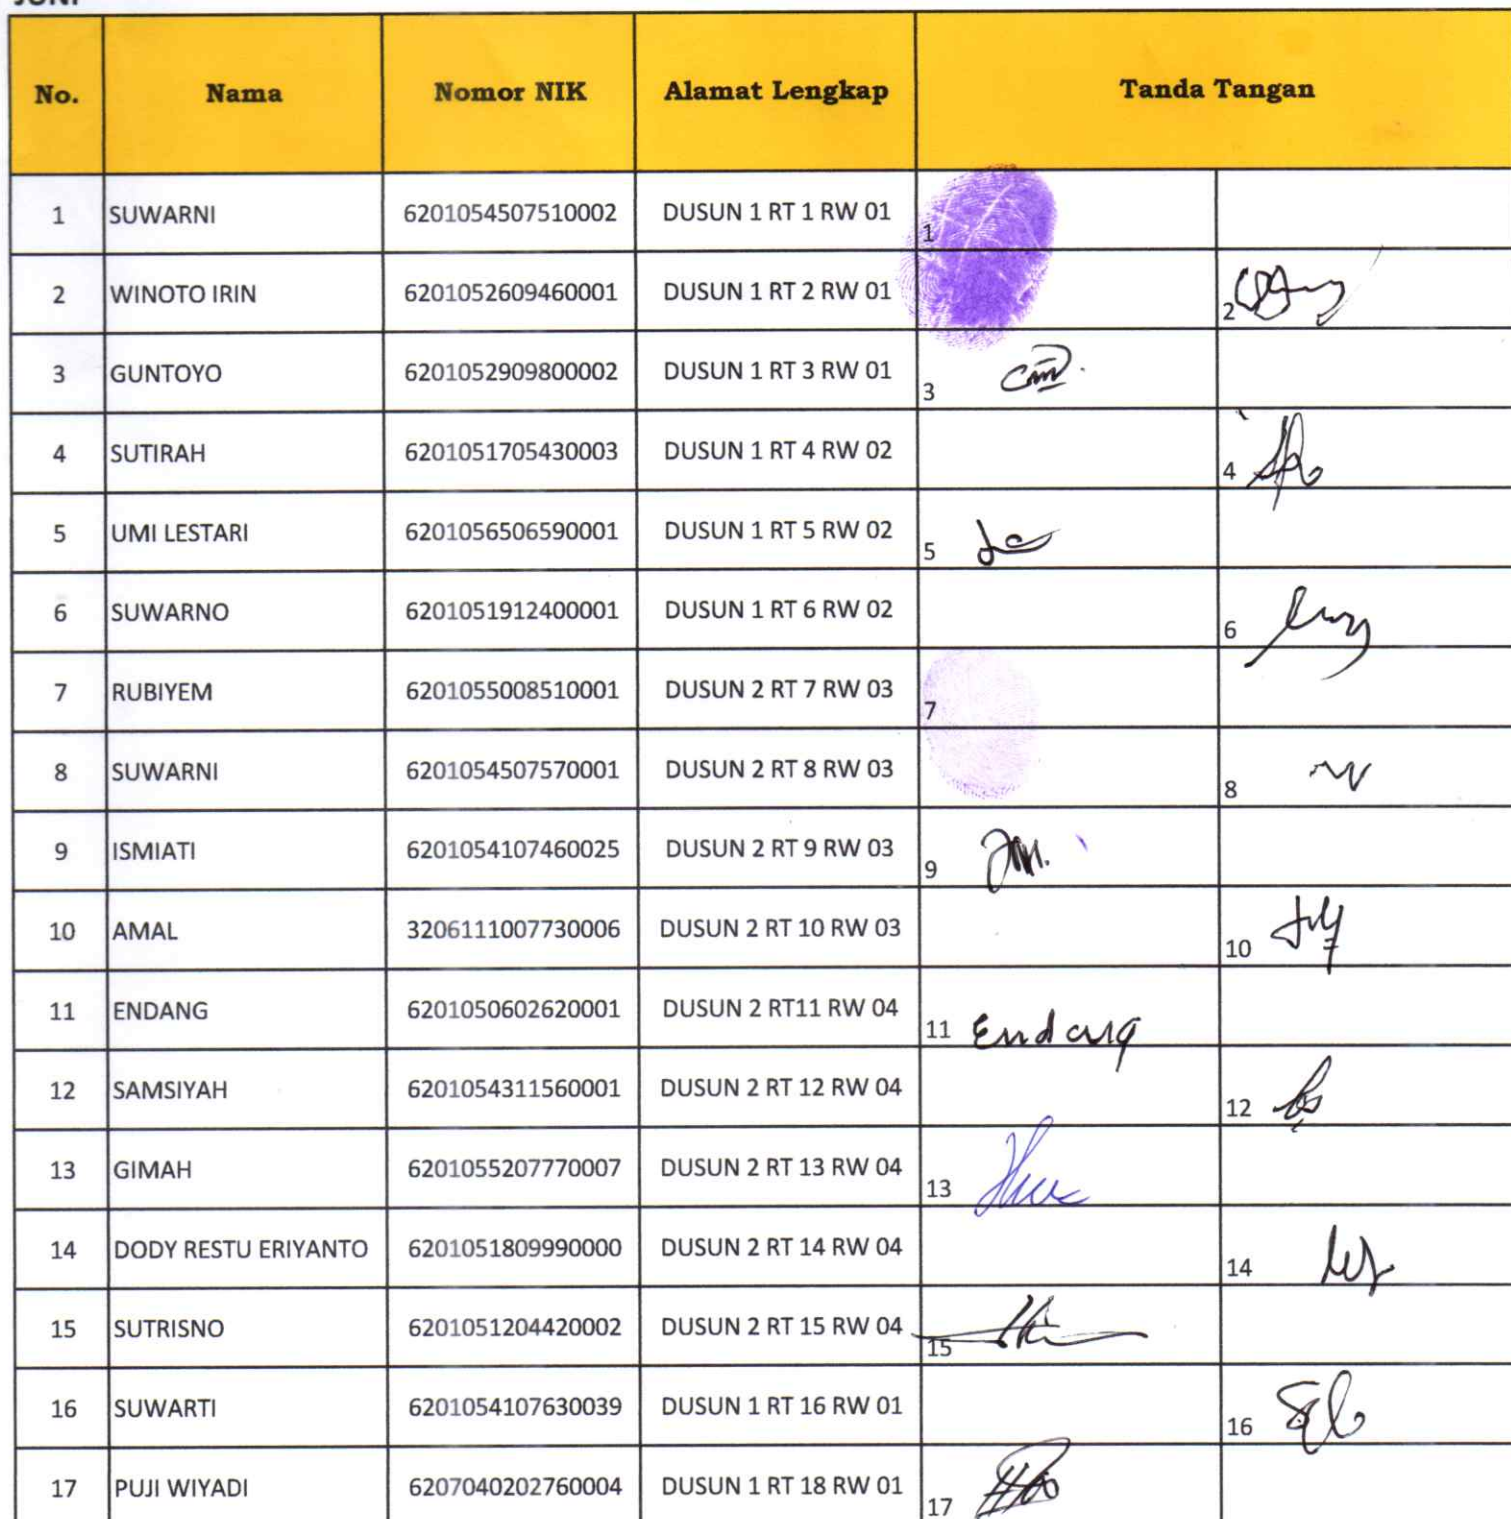 JUNI
No. Nama Nomor NIK Alamat Lengkap Tanda Tangan
1 SUWARNI 6201054507510002 DUSUN 1 RT 1 RW 01 1
2 WINOTO IRIN 6201052609460001 DUSUN 1 RT 2 RW 01 2
3 GUNTOYO 6201052909800002 DUSUN 1 RT 3 RW 01 3
4 SUTIRAH 6201051705430003 DUSUN 1 RT 4 RW 02 4
5 UMI LESTARI 6201056506590001 DUSUN 1 RT 5 RW 02 5
6 SUWARNO 6201051912400001 DUSUN 1 RT 6 RW 02 6
7 RUBIYEM 6201055008510001 DUSUN 2 RT 7 RW 03 7
8 SUWARNI 6201054507570001 DUSUN 2 RT 8 RW 03 8
9 ISMIATI 6201054107460025 DUSUN 2 RT 9 RW 03 9
10 AMAL 3206111007730006 DUSUN 2 RT 10 RW 03 10
11 ENDANG 6201050602620001 DUSUN 2 RT11 RW 04 11 Endang
12 SAMSIYAH 6201054311560001 DUSUN 2 RT 12 RW 04 12
13 GIMAH 6201055207770007 DUSUN 2 RT 13 RW 04 13
14 DODY RESTU ERIYANTO 6201051809990000 DUSUN 2 RT 14 RW 04 14
15 SUTRISNO 6201051204420002 DUSUN 2 RT 15 RW 04 15
16 SUWARTI 6201054107630039 DUSUN 1 RT 16 RW 01 16
17 PUJI WIYADI 6207040202760004 DUSUN 1 RT 18 RW 01 17